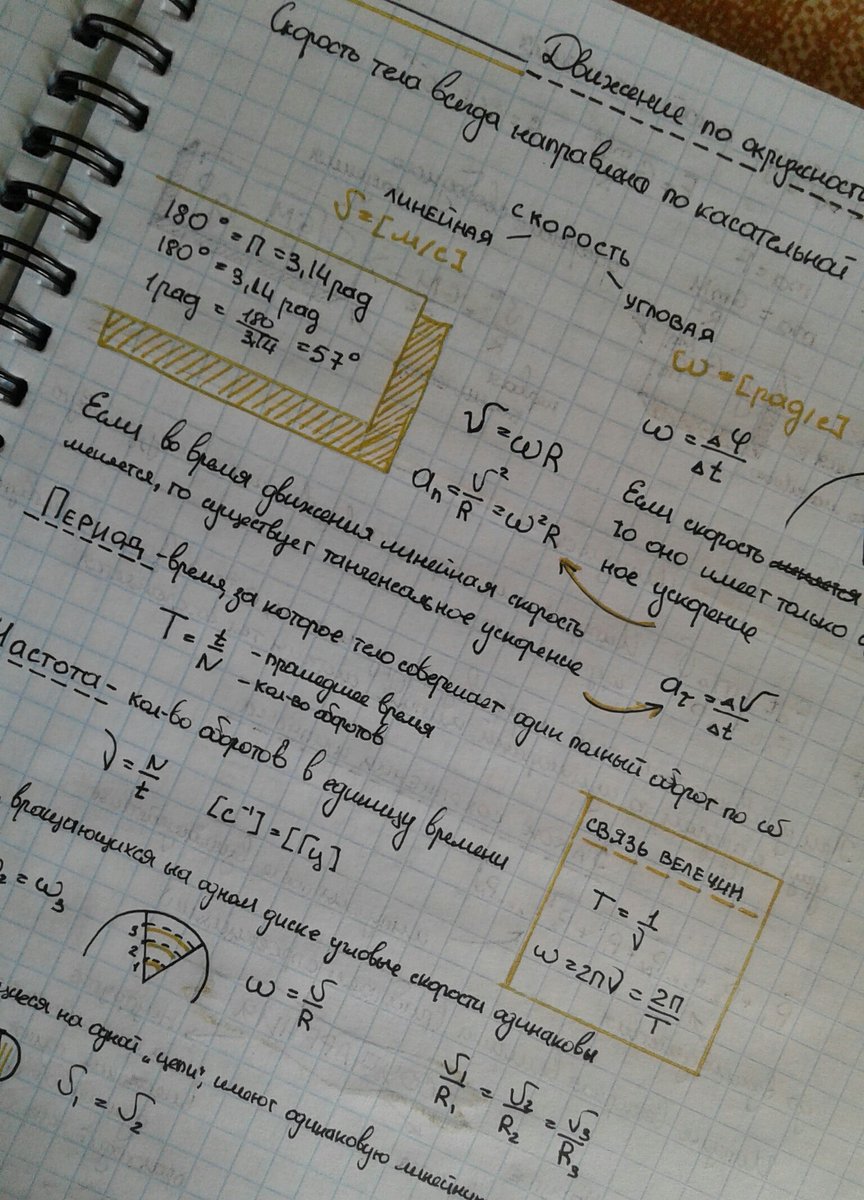 Движение по окружности
Скорость тела всегда направлена по касательной
180° = П = 3,14 рад
180° = 3,14 рад
1 рад = 180/3,14 = 57°
ЛИНЕЙНАЯ — СКОРОСТЬ
V = [м/с]
УГЛОВАЯ
ω = [рад/с]
V = ωR
ω = Δφ/Δt
aₙ = V²/R = ω²R
Если скорость
то оно имеет только
ное ускорение
Если во время движения линейная скорость
меняется, то существует тангенсальное ускорение
aτ = ΔV/Δt
ПЕРИОД - время, за которое тело совершает один полный оборот по
T = t/N - прошедшее время
- кол-во оборотов
Частота - кол-во оборотов в единицу времени
ν = N/t
[с⁻¹] = [Гц]
СВЯЗЬ ВЕЛЕЧИН
T = 1/ν
ω = 2πν = 2π/T
вращающихся на одном диске угловые скорости одинаковы
₂ = ω₃
3
2
1
ω = V/R
V₁/R₁ = V₂/R₂ = V₃/R₃
на одной „цепи", имеют одинаковую
V₁ = V₂